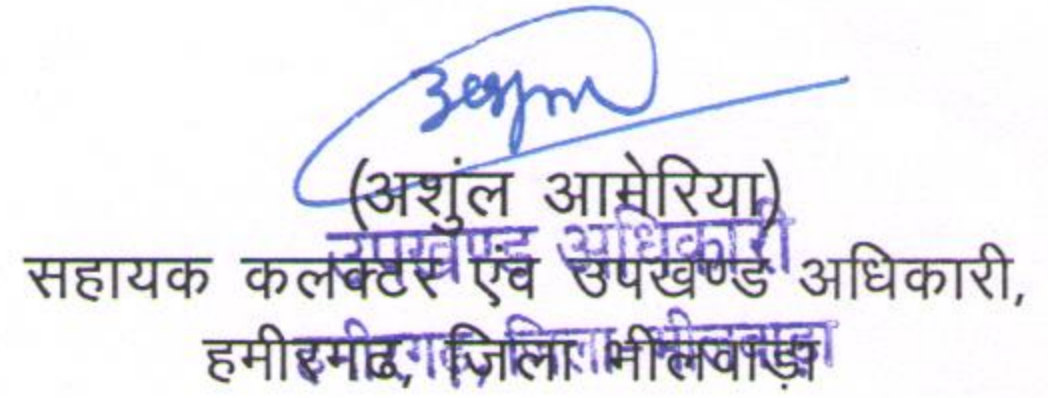 (अशुंल आमेरिया)
उपखण्ड अधिकारी
सहायक कलक्टर एंव उपखण्ड अधिकारी,
हमीरगढ, जिला भीलवाड़ा